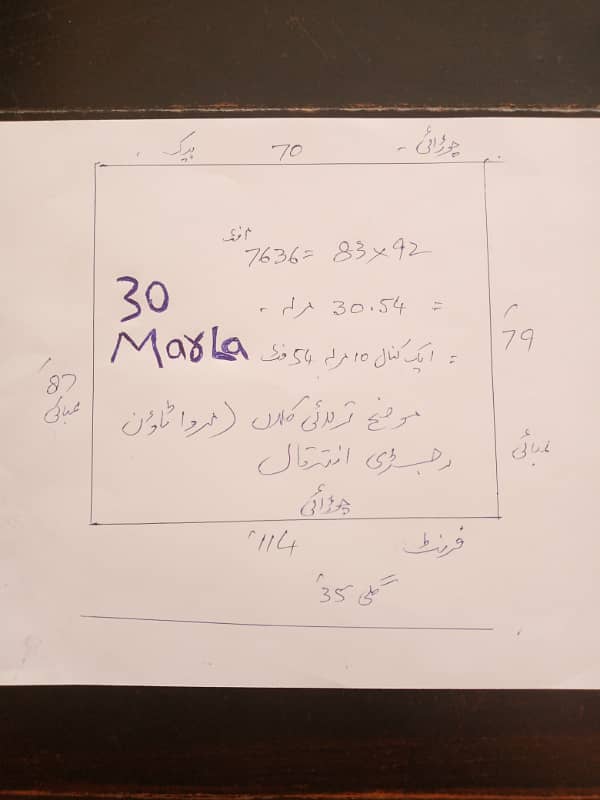 چوڑائی - 70 بیک -
7636 = 83×92 فٹ
30
Marla
= 30.54 مرلہ -
= ایک کنال 10 مرلہ 54 فٹ
79
87
لمبائی
لمبائی
موضع ترلائی کلاں (مروا ٹاؤن
رجسڑی انتقال
چوڑائی
فرنٹ 114
گلی 35